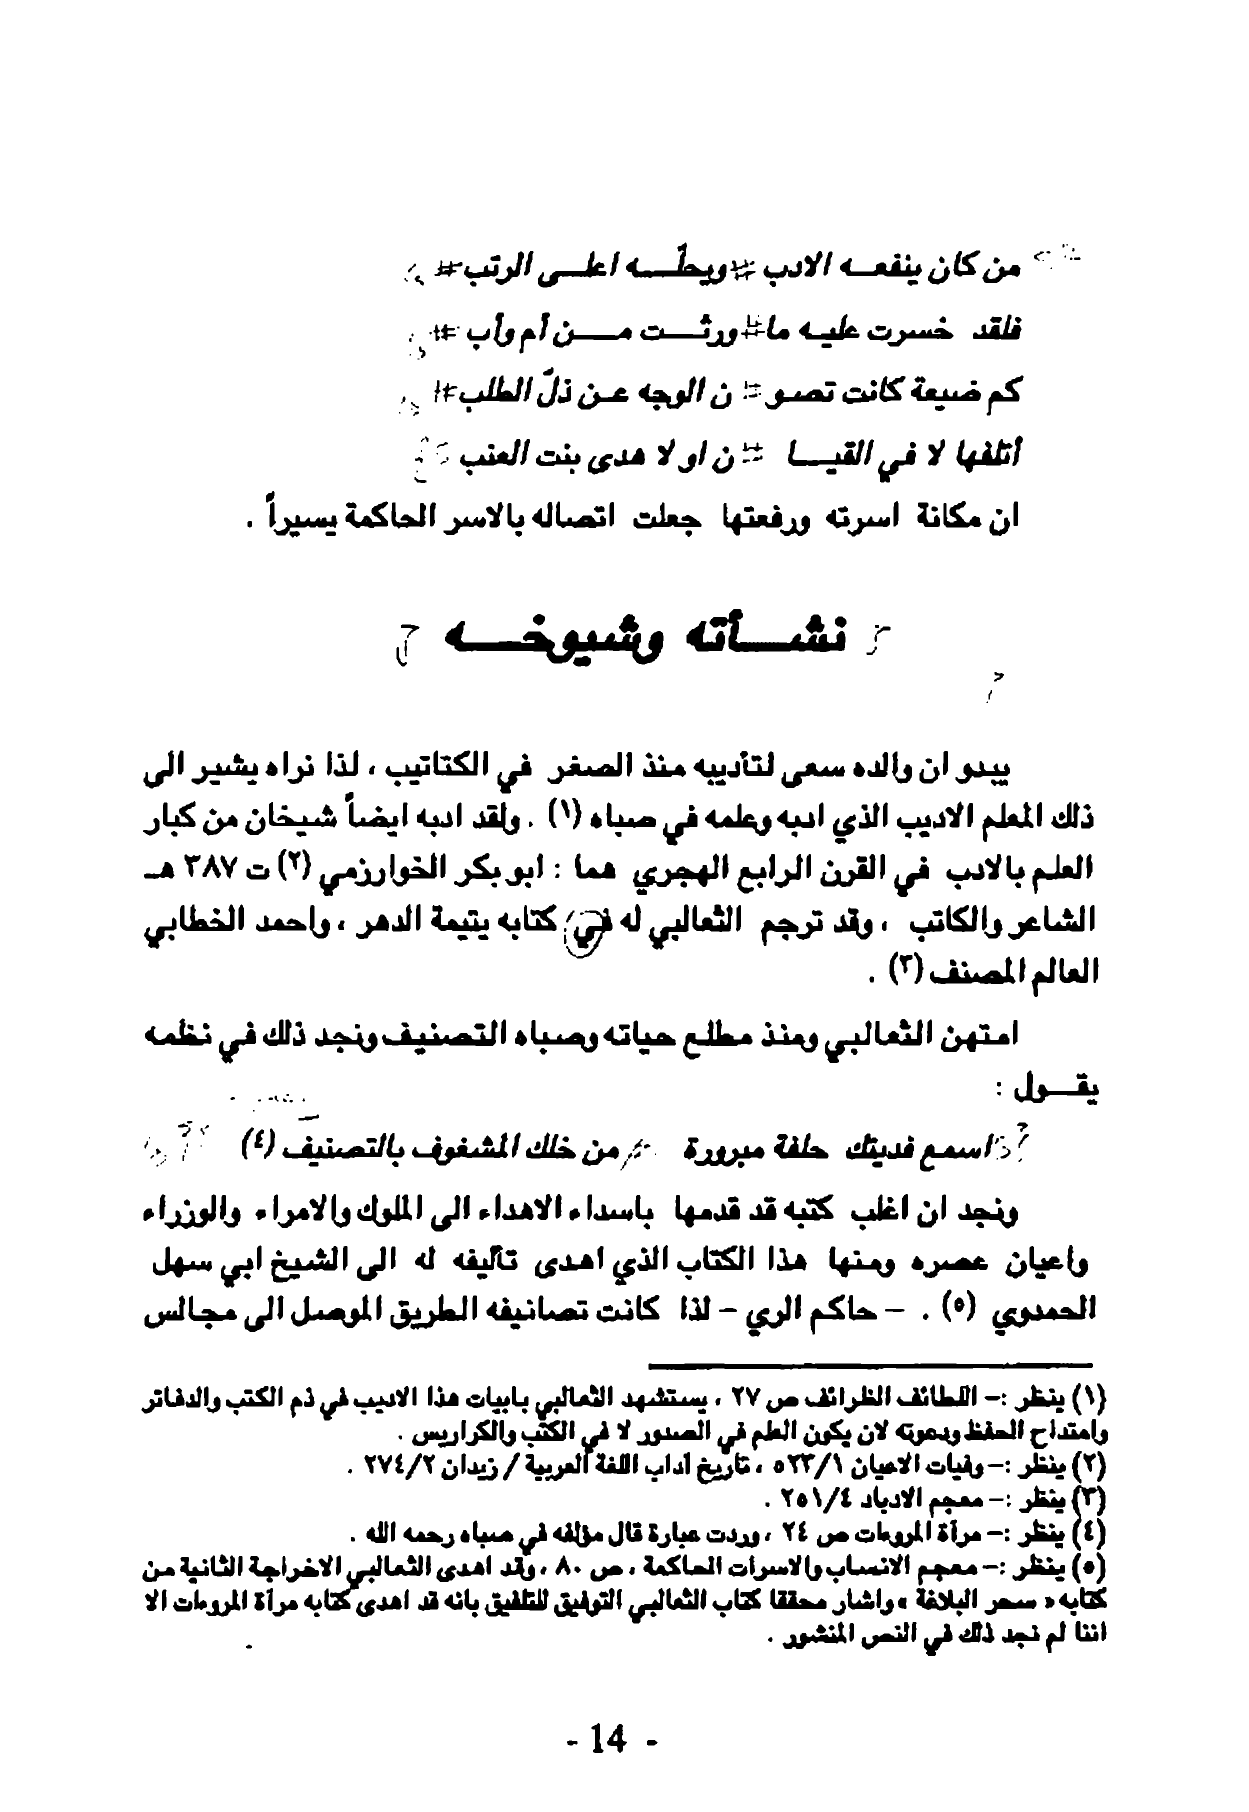 من كان ينفعـه الادب # ويحلّـــه اعلــى الرتب #
فلقد خسرت عليه ما # ورثـــت مـــن أم وأب #
كم ضيعة كانت تصو = ن الوجه عن ذلّ الطلب #
أتلفها لا في القيــا # ن او لا هدى بنت العنب
ان مكانة اسرته ورفعتها جعلت اتصاله بالاسر الحاكمة يسيراً .
نشــأته وشيوخــه
يبدو ان والده سعى لتأديبه منذ الصغر في الكتاتيب ، لذا نراه يشير الى
ذلك المعلم الاديب الذي ادبه وعلمه في صباه (١) . ولقد ادبه ايضاً شيخان من كبار
العلم بالادب في القرن الرابع الهجري هما : ابو بكر الخوارزمي (٢) ت ٣٨٧ هـ
الشاعر والكاتب ، وقد ترجم الثعالبي له في كتابه يتيمة الدهر ، واحمد الخطابي
العالم المصنف (٣) .
امتهن الثعالبي ومنذ مطلع حياته وصباه التصنيف ونجد ذلك في نظمه
يقــول :
اسمع فديتك حلفة مبرورة من خلك المشغوف بالتصنيف (٤)
ونجد ان اغلب كتبه قد قدمها باسداء الاهداء الى الملوك والامراء والوزراء
واعيان عصره ومنها هذا الكتاب الذي اهدى تأليفه له الى الشيخ ابي سهل
الحمدوي (٥) . – حاكم الري – لذا كانت تصانيفه الطريق الموصل الى مجالس
(١) ينظر :– اللطائف الظرائف ص ٢٧ ، يستشهد الثعالبي بابيات هذا الاديب في ذم الكتب والدفاتر
وامتداح الحفظ ودعوته لان يكون العلم في الصدور لا في الكتب والكراريس .
(٢) ينظر :– وفيات الاعيان ٥٢٣/١ ، تاريخ آداب اللغة العربية / زيدان ٢٧٤/٢ .
(٣) ينظر :– معجم الادباء ٢٥١/٤ .
(٤) ينظر :– مرآة المروءات ص ٢٤ ، وردت عبارة قال مؤلفه في صباه رحمه الله .
(٥) ينظر :– معجم الانساب والاسرات الحاكمة ، ص ٨٠ ، وقد اهدى الثعالبي الاخراجة الثانية من
كتابه « سحر البلاغة » واشار محققا كتاب الثعالبي التوفيق للتلفيق بانه قد اهدى كتابه مرآة المروءات الا
اننا لم نجد ذلك في النص المنشور .
- 14 -